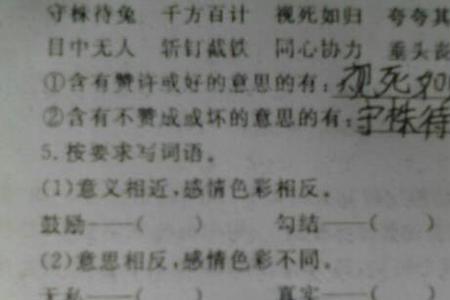 守株待兔 千方百计 视死如归 夸夸其
目中无人 斩钉截铁 同心协力 垂头丧
①含有赞许或好的意思的有:视死如
②含有不赞成或坏的意思的有:守株待
5.按要求写词语。
(1)意义相近,感情色彩相反。
鼓励——( ) 勾结——( )
(2)意思相反,感情色彩不同。
无私——( ) 真实——( )